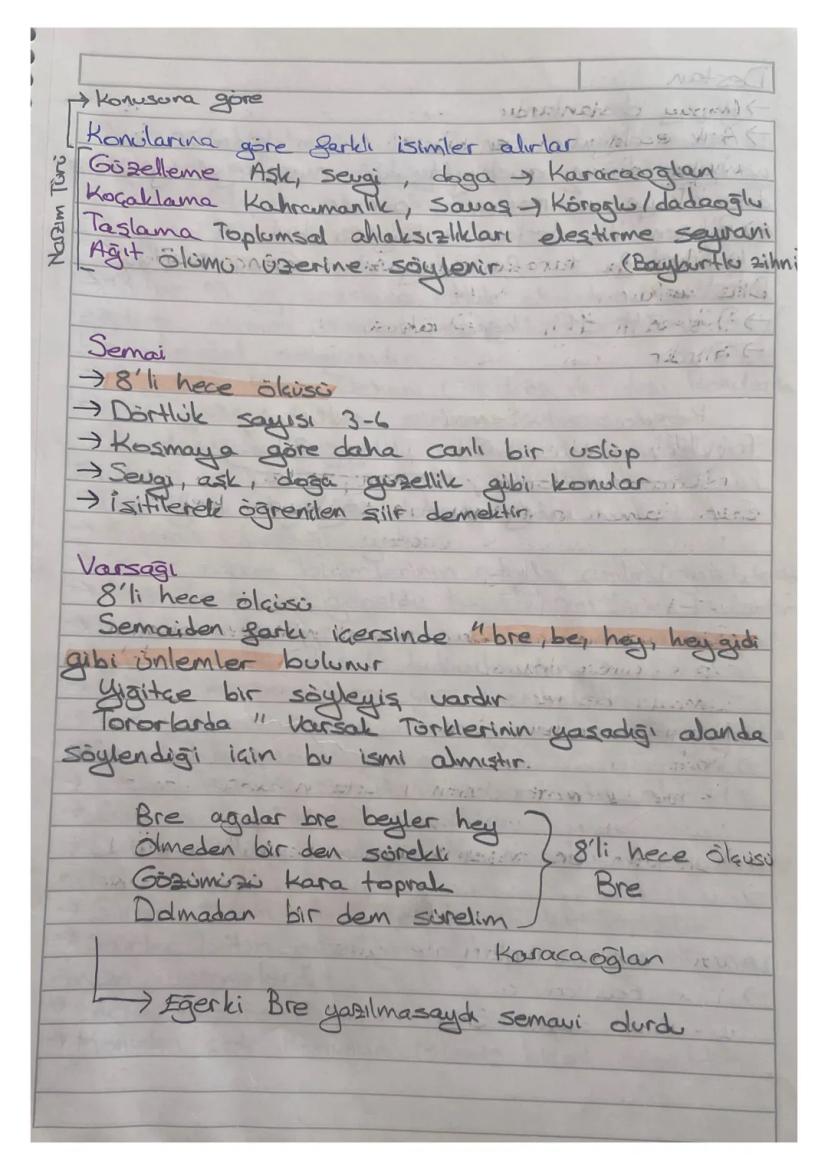 → Konusuna göre
Konularına göre farklı isimler alırlar
Nazım Türü
Güzelleme Aşk, sevgi, doğa → Karacaoğlan
Koçaklama Kahramanlık, savaş → Köroğlu/dadaoğlu
Taşlama Toplumsal ahlaksızlıkları eleştirme seyrani
Ağıt ölümü üzerine söylenir (Bayburtlu zihni
Semai
→ 8'li hece ölçüsü
→ Dörtlük sayısı 3-6
→ Koşmaya göre daha canlı bir uslüp
→ Sevgi, aşk, doğa, güzellik gibi konular
→ İşitilerek öğrenilen şiir demektir.
Varsağı
8'li hece ölçüsü
Semaiden farkı içersinde "bre, be, hey, hey gidi
gibi ünlemler bulunur
Yiğitçe bir söyleyiş vardır
Tororlarda " Varsak Türklerinin yaşadığı alanda
söylendiği için bu ismi almıştır.
Bre agalar bre beyler hey
Ölmeden bir den sürekli
Gözümüzü kara toprak
Dolmadan bir dem sürelim
8'li hece ölçüsü
Bre
Karacaoğlan
→ Eğerki Bre yazılmasaydı semavi olurdu